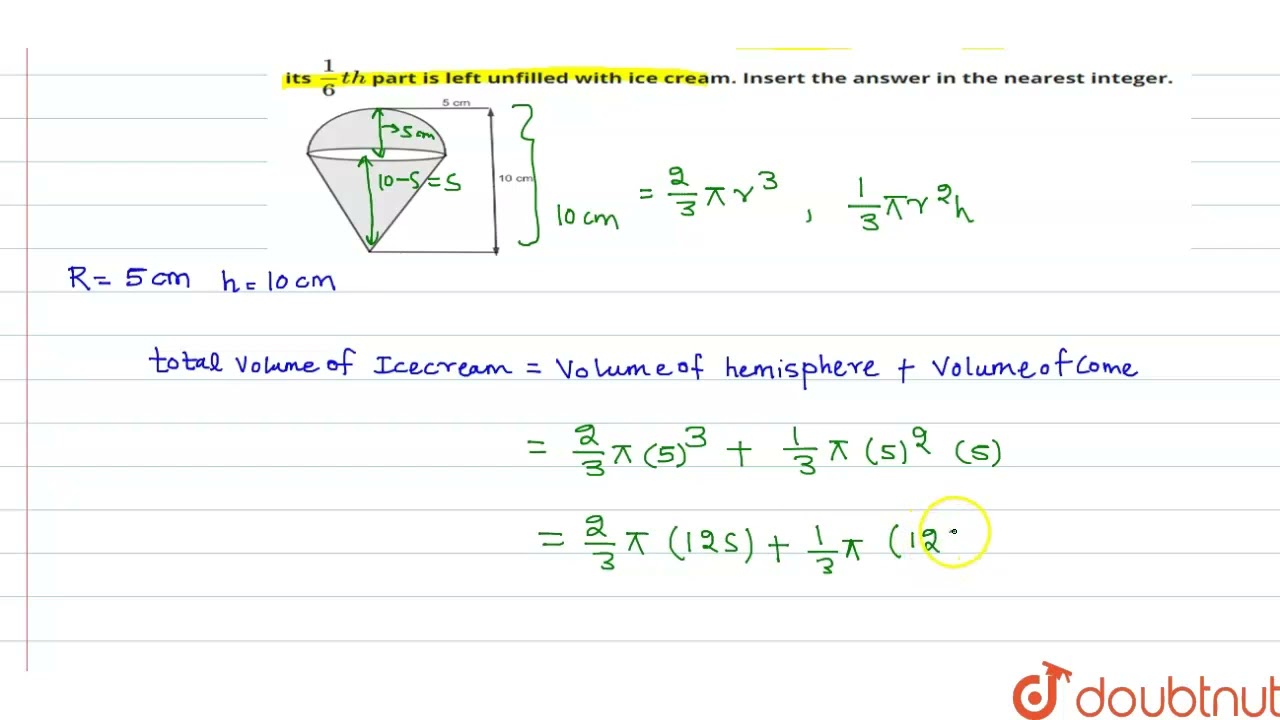 its 1/6 th part is left unfilled with ice cream. Insert the answer in the nearest integer.
5 cm
→5cm
10-5=5
10 cm
10 cm
= 2/3 πr³ , 1/3 πr²h
R = 5 cm h = 10 cm
total volume of Icecream = Volume of hemisphere + Volume of Come
= 2/3 π (5)³ + 1/3 π (5)² (5)
= 2/3 π (125) + 1/3 π (12
doubtnut